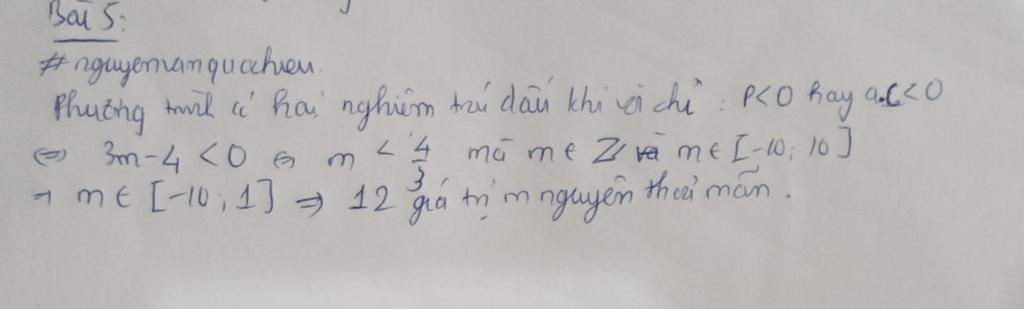 Bài 5:
#nguyenvanquochieu.
Phương trình có hai nghiệm trái dấu khi và chỉ: P<0 hay a.c<0
⇔ 3m-4 <0 ⇔ m < 4/3 mà m ∈ Z và m ∈ [-10; 10]
→ m ∈ [-10; 1] ⇒ 12 giá trị m nguyên thoả mãn.